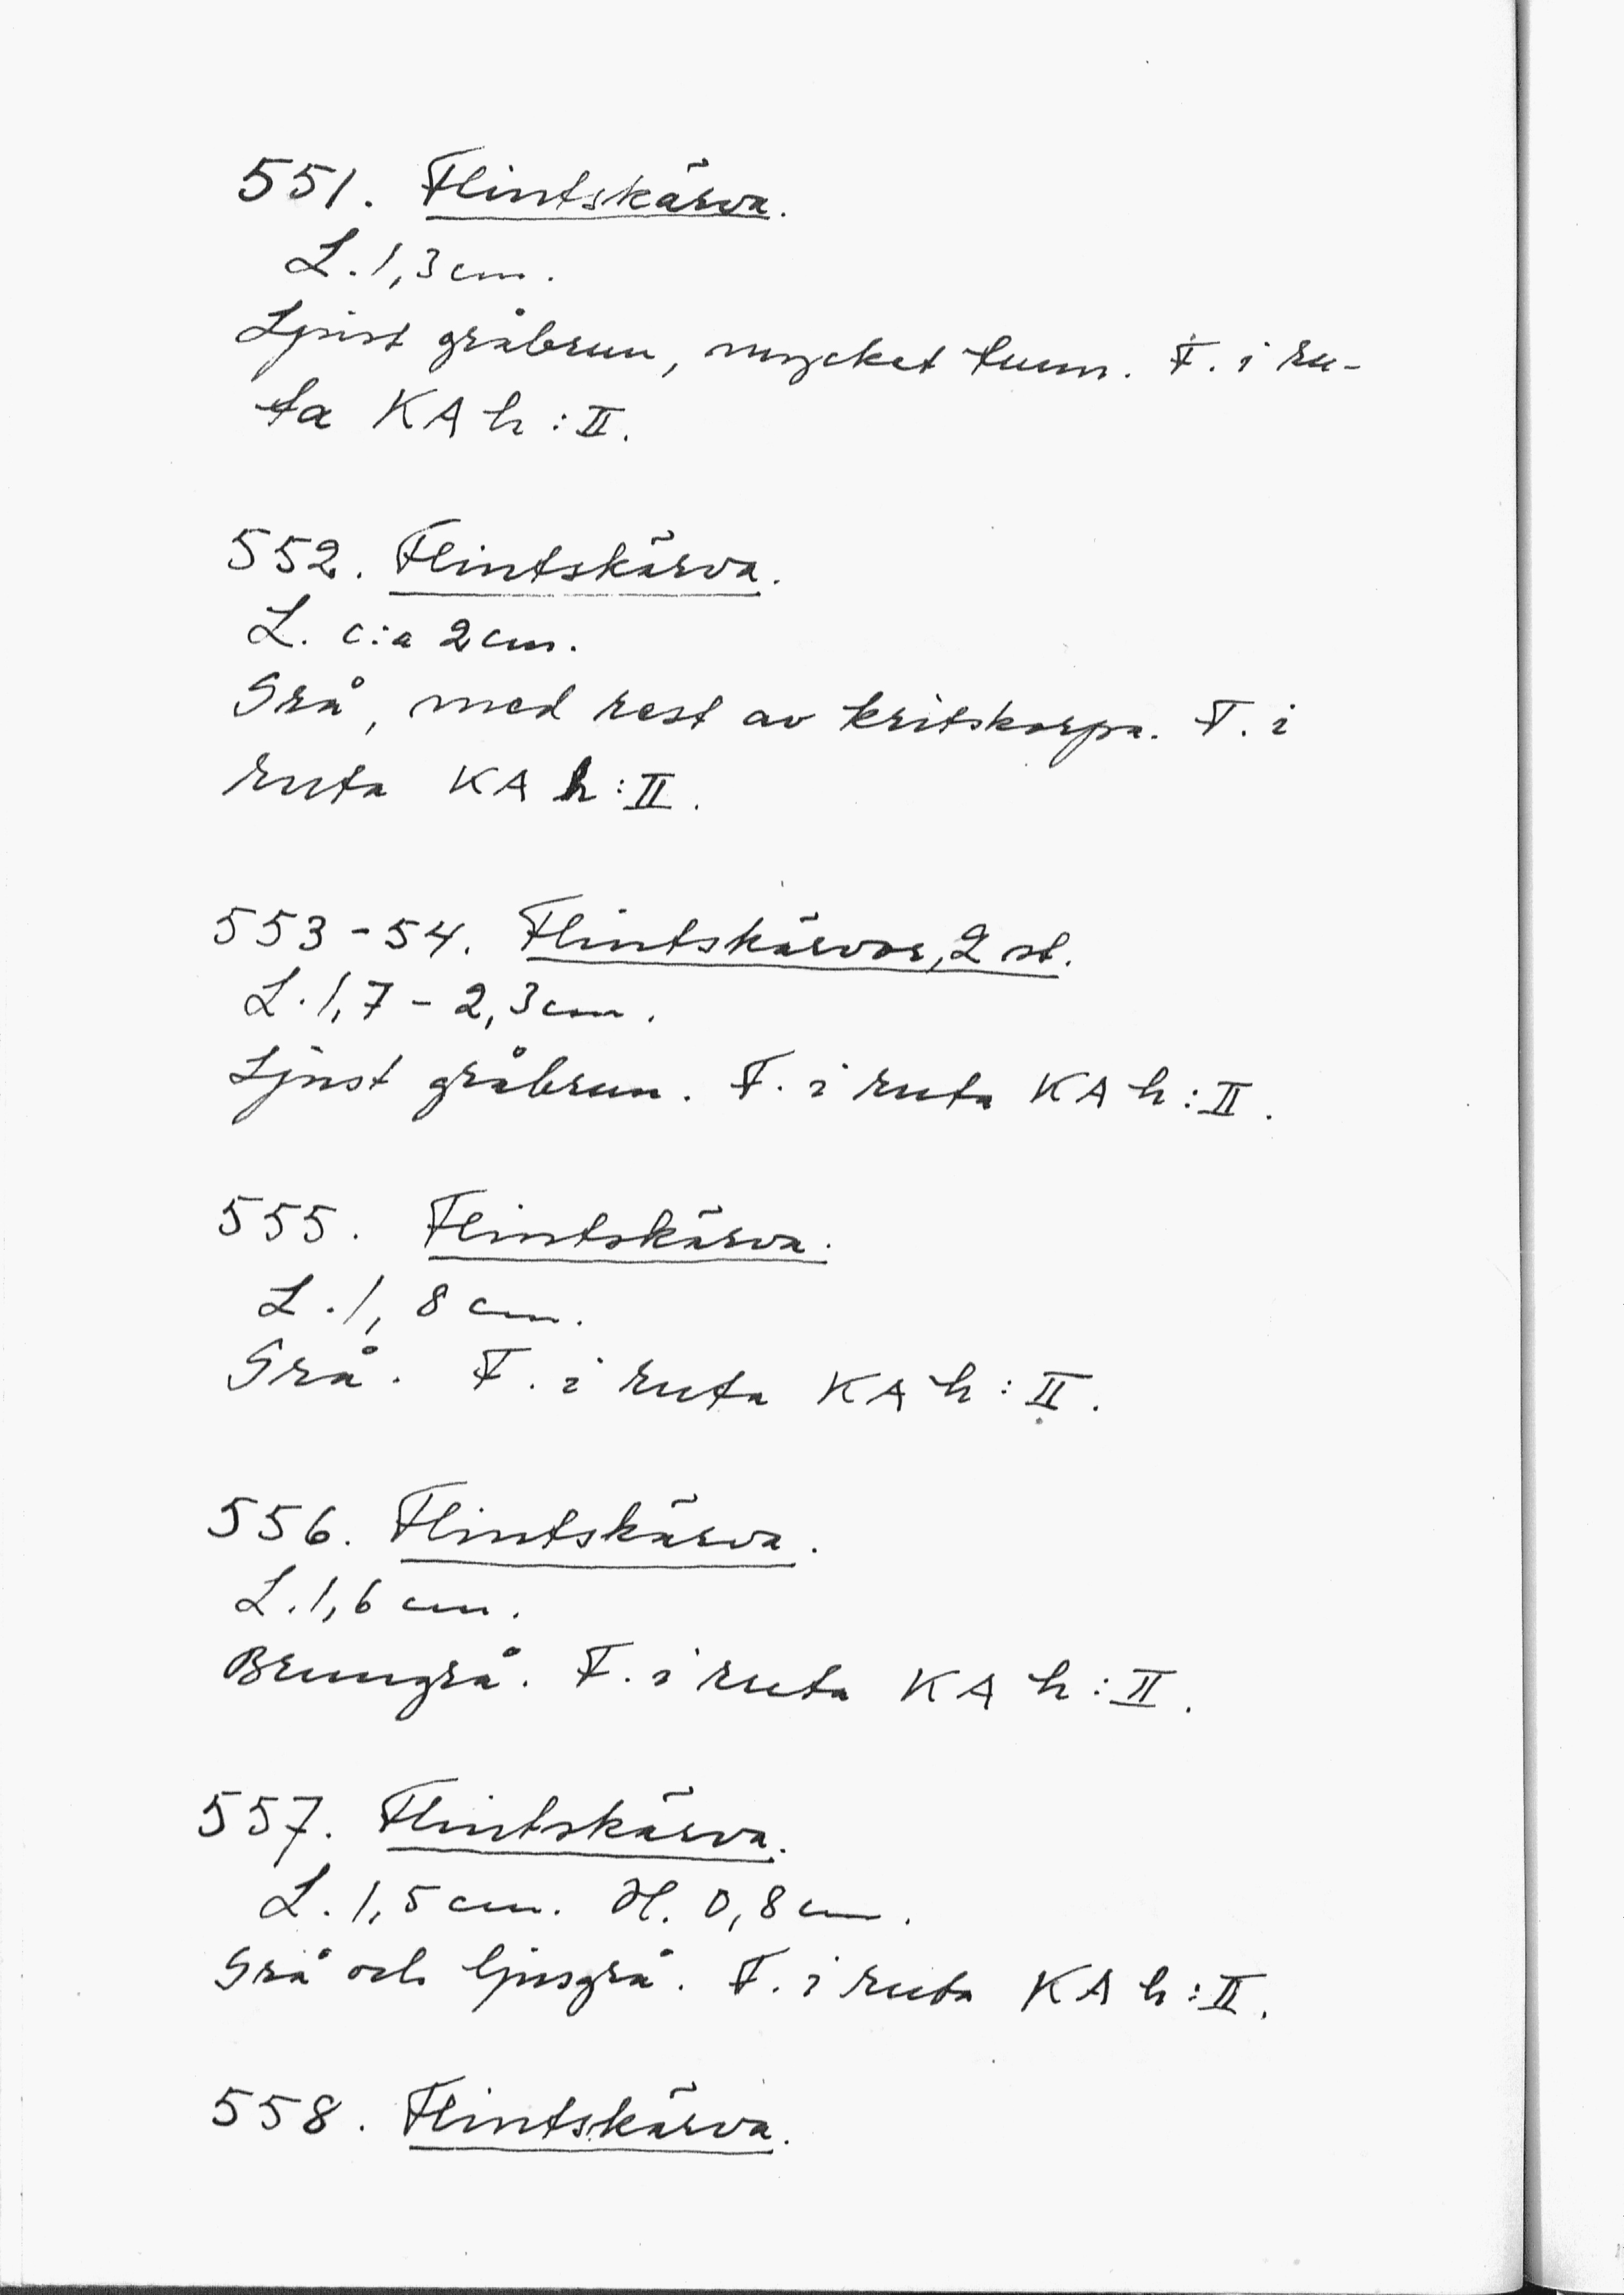 551. Flintskärva.
L. 1,3 cm.
Ljust gråbrun, mycket tunn. F. i ru-
ta KA h:II.
552. Flintskärva.
L. c:a 2 cm.
Grå, med rest av kritskorpa. F. i
ruta KA h:II.
553-54. Flintskärvor, 2 st.
L. 1,7 - 2,3 cm.
Ljust gråbrun. F. i ruta KA h:II.
555. Flintskärva.
L. 1,8 cm.
Grå. F. i ruta KA h:II.
556. Flintskärva.
L. 1,6 cm.
Brungrå. F. i ruta KA h:II.
557. Flintskärva.
L. 1,5 cm. H. 0,8 cm.
Grå och ljusgrå. F. i ruta KA h:II.
558. Flintskärva.